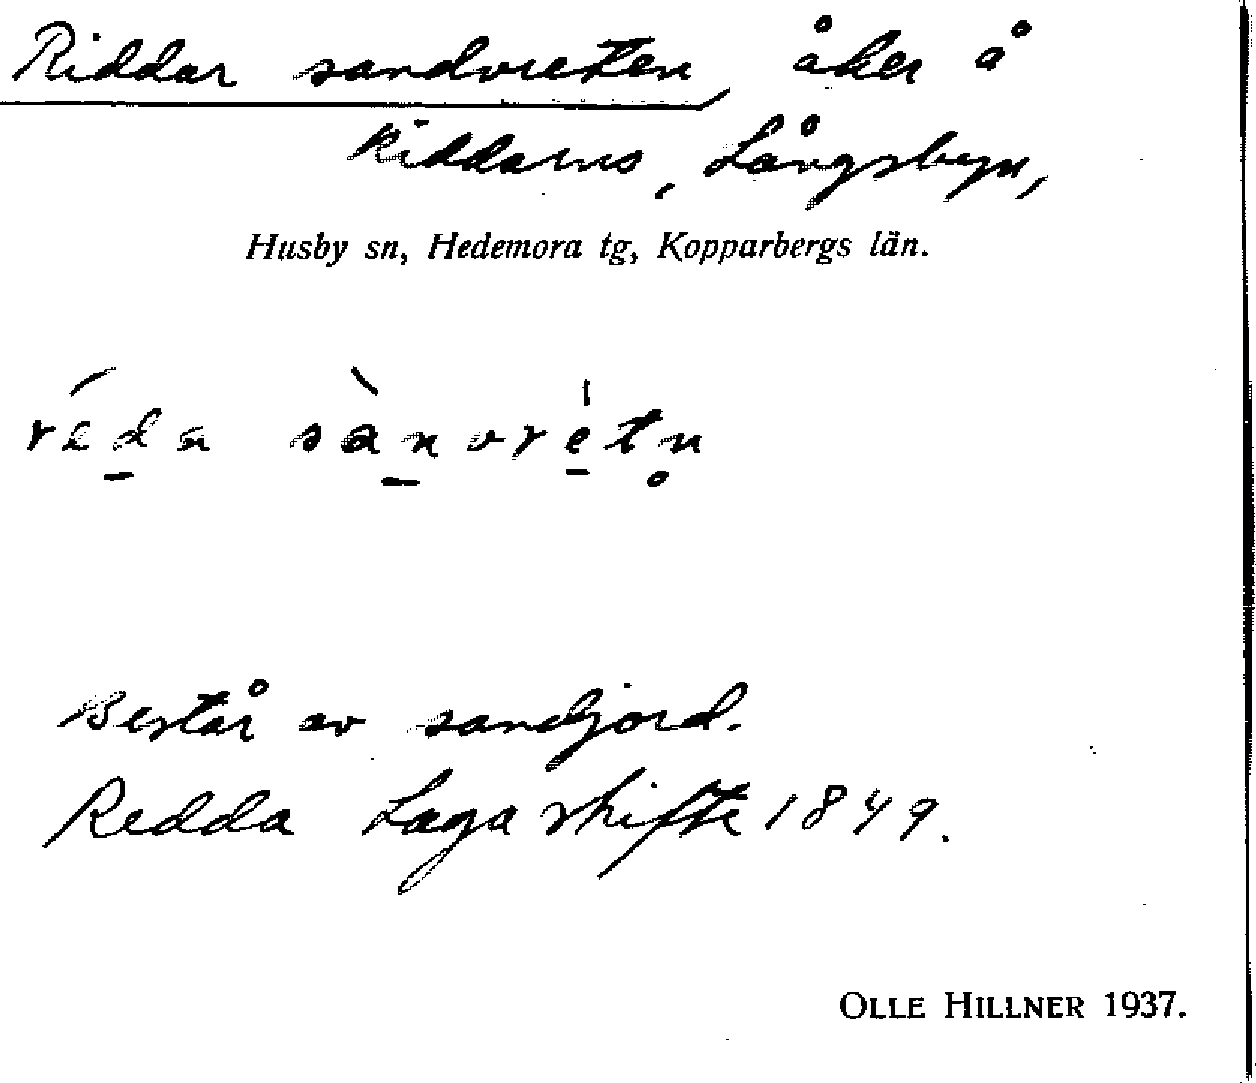 Riddar sandvreten, åker å
Riddarns, Långsbyn,
Husby sn, Hedemora tg, Kopparbergs län.
réda sànvretn̥
Består av sandjord.
Redda Laga skifte 1849.
OLLE HILLNER 1937.